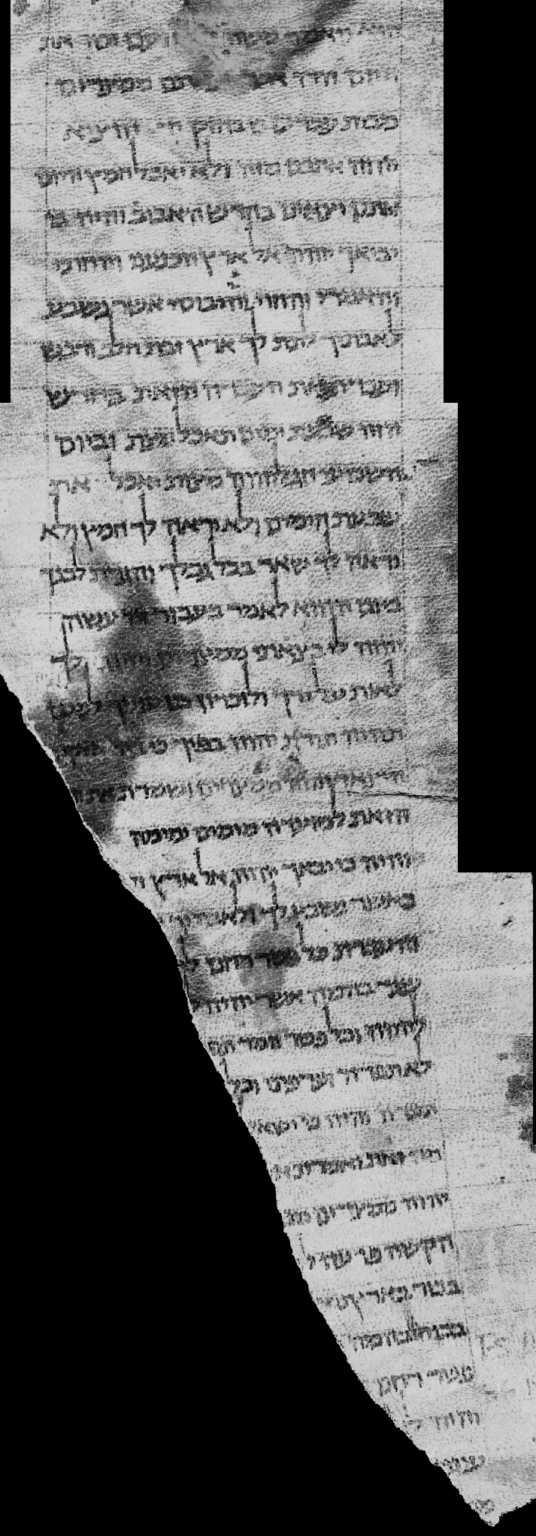 הוא ויאמר משה העם זכור את
היום הזה אשר ממצרים
מבית עבדים כי בחזק יד הוציא
יהוה אתכם מזה ולא יאכל חמץ היום
אתם יצאים בחדש האביב והיה כי
יביאך יהוה אל ארץ הכנעני והחתי
והאמרי והחוי והיבוסי אשר נשבע
לאבתיך לתת לך ארץ זבת חלב ודבש
ועבדת את העבדה הזאת בחדש
הזה שבעת ימים תאכל מצת וביום
השביעי חג ליהוה מצות יאכל את
שבעת הימים ולא יראה לך חמץ ולא
יראה לך שאר בכל גבלך והגדת לבנך
ביום ההוא לאמר בעבור זה עשה
יהוה לי בצאתי ממצרים והיה לך
לאות על ידך ולזכרון בין עיניך למען
תהיה תורת יהוה בפיך כי ביד
הוצאך יהוה ממצרים ושמרת את
הזאת למועדה מימים ימימה
והיה כי יבאך יהוה אל ארץ ה
כאשר נשבע לך ולאבתיך
והעברת כל פטר רחם ל
שגר בהמה אשר יהיה ל
ליהוה וכל פטר חמר תפ
לא תפדה וערפתו וכל
תפדה והיה כי ישאל
מה זאת ואמרת א
יהוה ממצרים מב
הקשה פרעה ל
בכור בארץ
בכור בהמה
פטר רחם
והיה ל